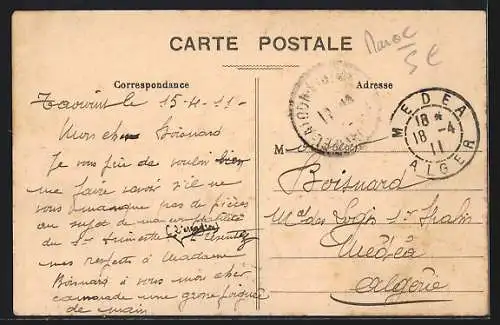 Maroc
5 €
CARTE POSTALE
Correspondance
Adresse
Taourirt le 15-4-11-
Mon cher Boisnard
Je vous prie de vouloir bien
me faire savoir s'il ne
vous manque pas de pièces
au sujet de ma comptabilité
du 1er trimestre
mes respects à Madame
Boisnard à vous mon cher
camarade une grosse poignée
de main
M
Boisnard
Mal des Logis 1er Spahis
Médéa
Algérie
MEDEA
18 *
18 -4
11
ALGER